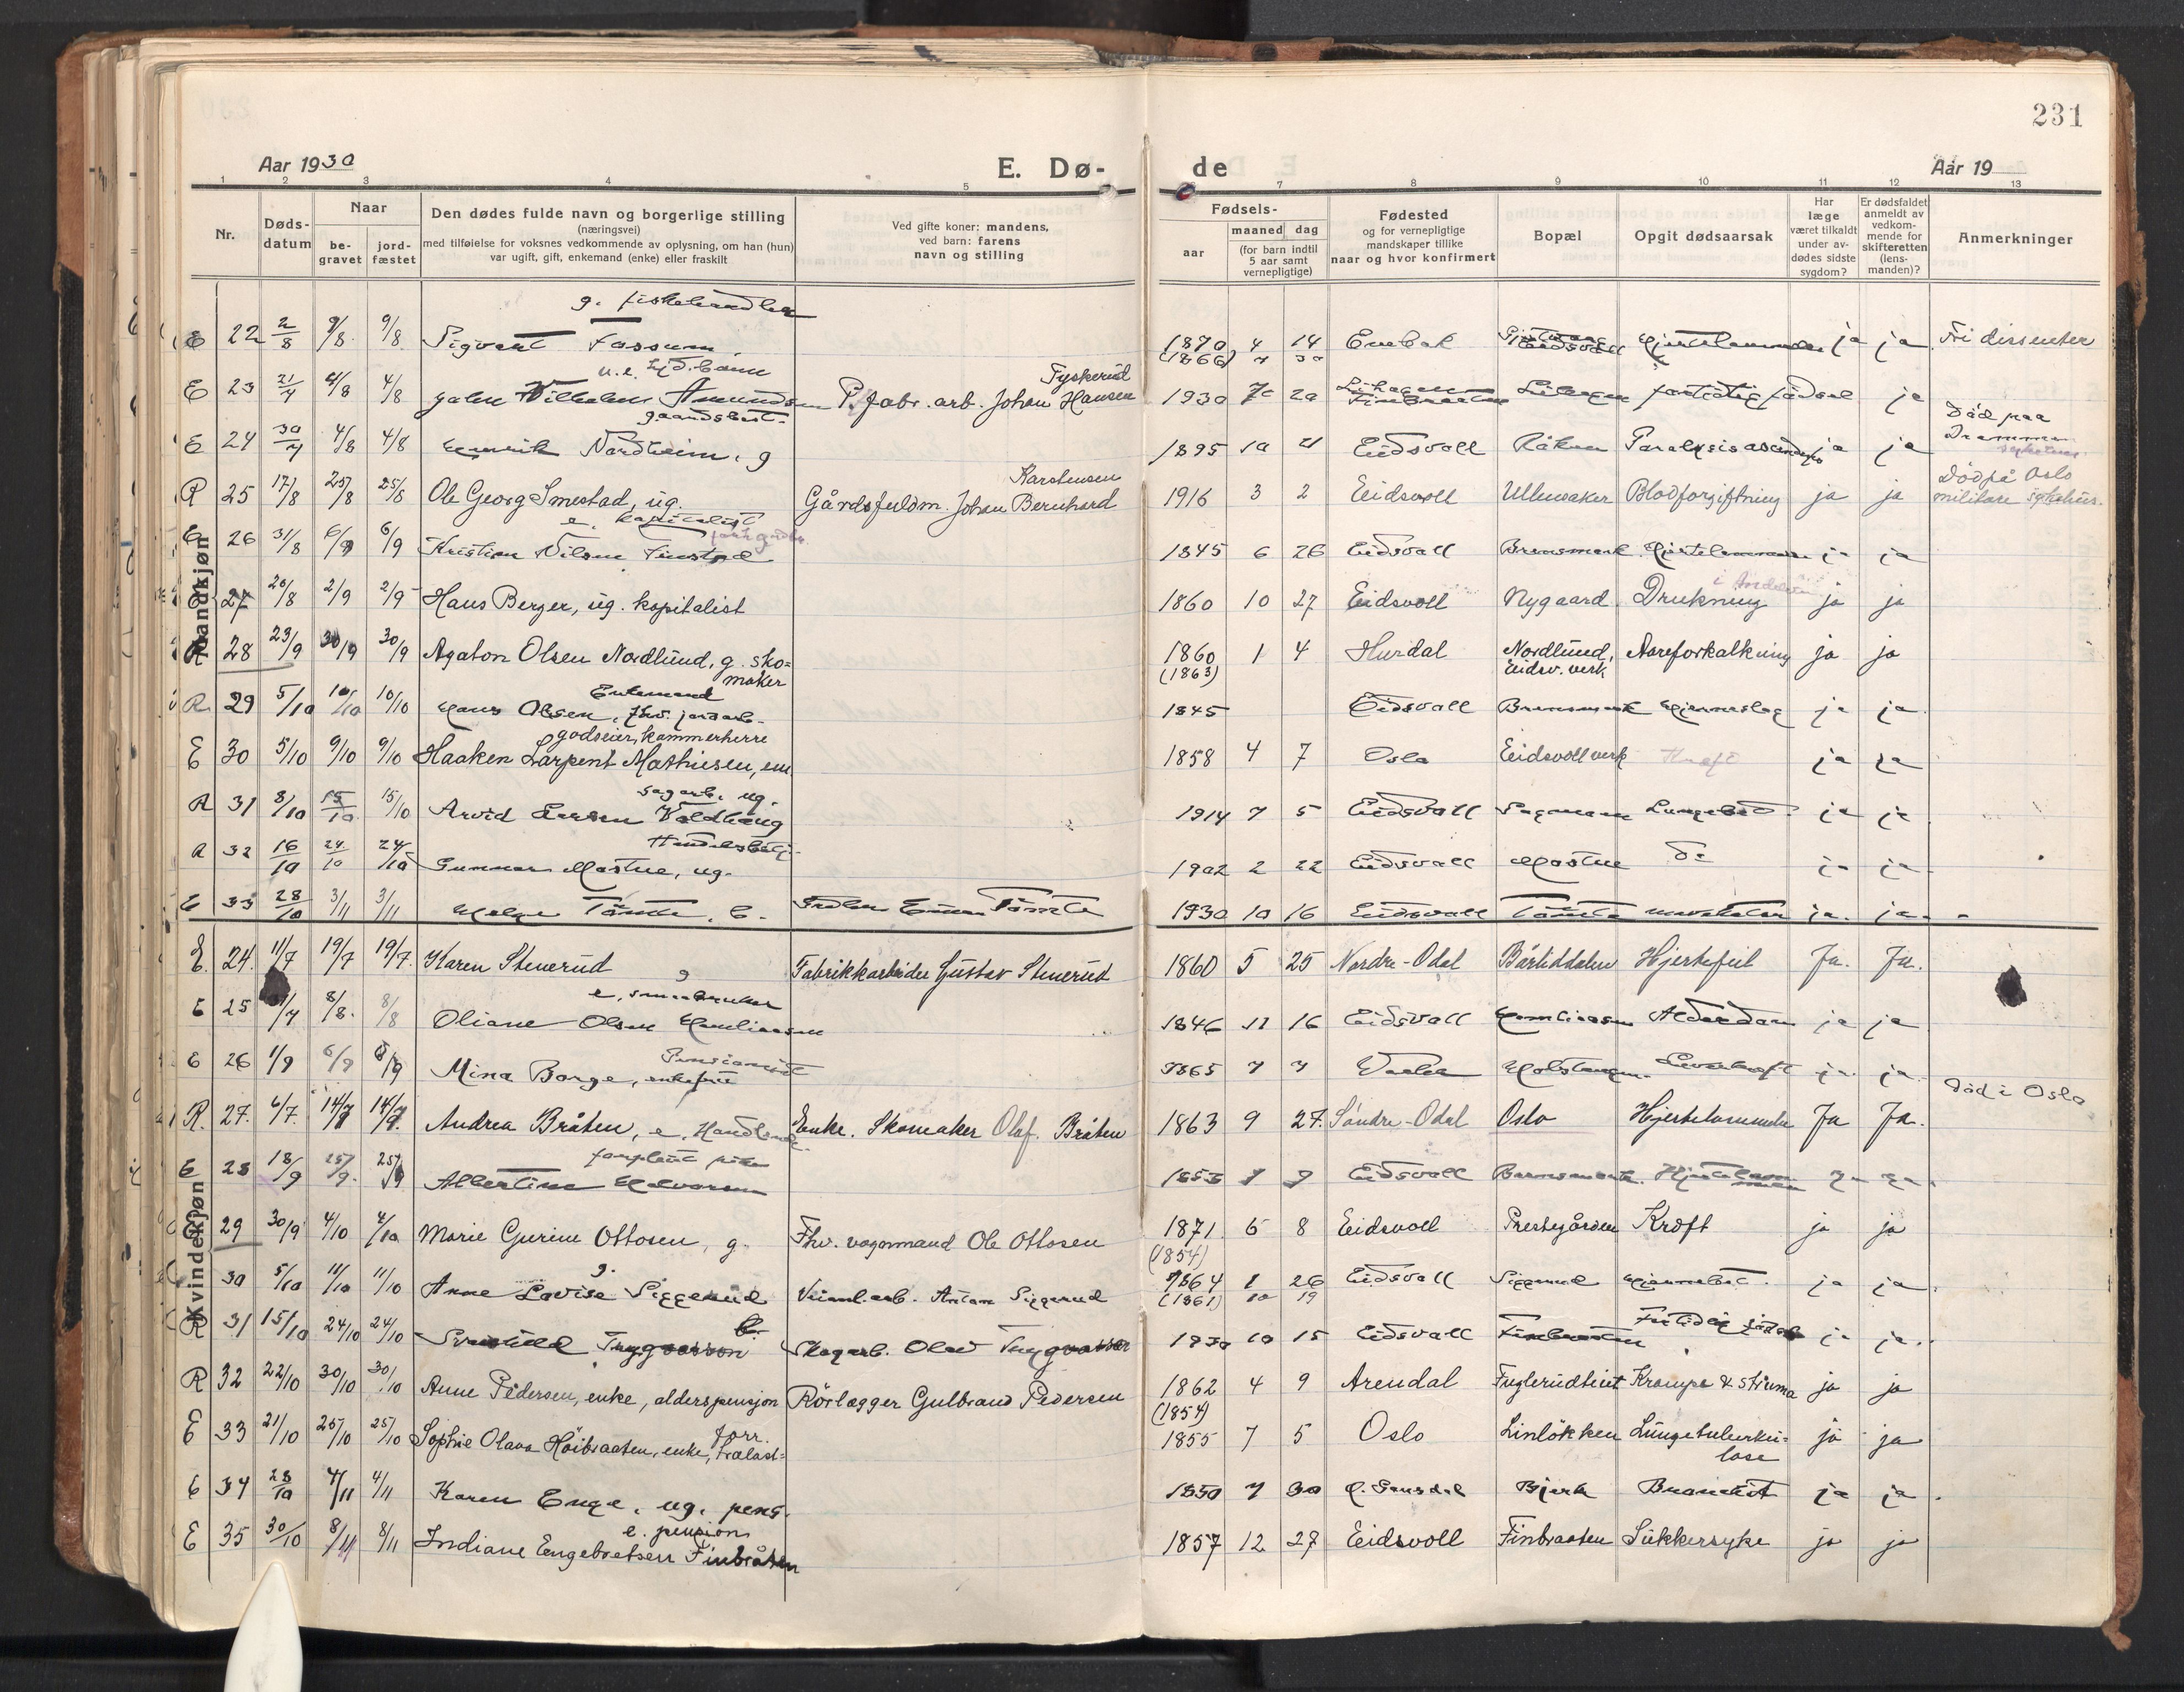 231
Aar 1930 E. Dø- de Aar 19
1 2 3 4 5 7 8 9 10 11 12 13
Nr. Døds-datum Naar be-gravet jord-fæstet Den dødes fulde navn og borgerlige stilling (næringsvei) med tilføielse for voksnes vedkommende av oplysning, om han (hun) var ugift, gift, enkemand (enke) eller fraskilt Ved gifte koner: mandens, ved barn: farens navn og stilling Fødsels- aar maaned dag (for barn indtil 5 aar samt vernepligtige) Fødested og for vernepligtige mandskaper tillike naar og hvor konfirmert Bopæl Opgit dødsaarsak Har læge været tilkaldt under av-dødes sidste sygdom? Er dødsfaldet anmeldt av vedkom-mende for skifteretten (lens-manden)? Anmerkninger
Mandkjøn
g. fiskehandler
E 22 2/8 9/8 9/8 Sigvart Fossum 1870 4 14 Enebak Eidsvoll Hjertelammelse ja ja Fri dissenter
(1866)
u.e. Tyskerud
E 23 21/7 4/8 4/8 Wilhelm Amundsen P. fabr. arb. Johan Hansen 1930 20 fødsel ja
E 24 30/7 4/8 4/8 Henrik Nordheim, g 1895 10 21 Eidsvoll Råken Paralysis ascendens ja ja Død paa Drammen sykehus.
Karstensen
R 25 17/8 25/8 25/8 Ole Georg Smestad, ug. Gårdsfuldm. Johan Bernhard 1916 3 2 Eidsvoll Ullensaker Blodforgiftning ja ja Död på Oslo militære sykehus.
e. kapitalist
E 26 31/8 6/9 6/9 Kristian Nilsen Finstad 1845 6 26 Eidsvoll Brensmork Hjertelammelse ja ja
E 27 20/8 2/9 2/9 Hans Berger, ug. kapitalist 1860 10 27 Eidsvoll Nygaard Drukning i Andelven ja ja
R 28 23/9 30/9 30/9 Agaton Olsen Nordlund, g. sko=maker 1860 1 4 Hurdal Nordlund, Eidsv. verk Aareforkalkning ja ja
(1863)
Enkemand
R 29 5/10 10/10 10/10 Hans Olsen, fhv. jordarb. 1845 Eidsvoll Brensmork Hjerneslag ja ja
godseier, kammerherre
E 30 5/10 9/10 9/10 Haaken Larpent Mathiesen, em 1858 4 7 Oslo Eidsvoll verk Kræft ja ja
sagarb. ug.
R 31 8/10 15/10 15/10 Arvid Larsen Koldhaug 1914 7 5 Eidsvoll Sagmoen ja ja
Handelsbetj.
R 32 16/10 24/10 24/10 Gunnar Mastue, ug. 1902 2 22 Eidsvoll Mastue do ja ja
E 33 28/10 3/11 3/11 Helge Tömte, b. Einar Tömte 1930 10 16 Eidsvoll Tömte ja. ja.
Kvindekjøn
E. 24. 11/7 19/7 19/7. Karen Stenerud g Fabrikkarbeider Gustav Stenerud 1860 5 25 Nordre-Odal Bårliddalen Hjertefeil Ja. Ja.
e, smaabruker
E 25 31/7 8/8. 8/8 Oliane Olsen Hemliaasen 1846 11 16 Eidsvoll Hemliaasen Alderdom ja ja
Pensionist
E 26 1/9 6/9 6/9 Mina Borge, enkefrue 1865 7 7 ja. ja.
R. 27. 6/7. 14/7 14/7. Andrea Bråten, e. Handlende. Enke. Skomaker Olaf. Bråten 1863 9 27. Söndre-Odal Oslo Hjertelammelse Ja Ja. Död i Oslo
E 28 18/9 25/9. 25/9 Albertine Halvorsen 1853 Eidsvoll Hjertelammelse ja ja
29 30/9 4/10 4/10 Marie Gurine Ottosen, g. Fhv. vognmand Ole Ottosen 1871. 6 8 Eidsvoll Prestegården Kræft ja ja
(1854)
g.
30 5/10 11/10 11/10 Anne Lovise Siggerud Veiaml. arb. Anton Siggerud 1864 1 26 Eidsvoll Siggerud ja ja
(1861) 10 19
b.
R 31 15/10 24/10 24/10 Svanhild Trygvasson Skogarb. Olav Trygvasson 1930 10 15 Eidsvoll Finbraaten For tidlig födsel ja ja.
R 32 22/10 30/10 30/10 Anne Pedersen, enke, alderspensjon Rörlegger Gulbrand Pedersen 1862 4 9 Arendal Fuglerudteiet Krampe & struma ja ja
(1854)
E 33 21/10 25/10 25/10 Sophie Olava Höibraaten, enke, forr. trælast= 1855 7 5 Oslo Linlökken Lungetuberku=lose ja ja
E 34 28/10 4/11 4/11 Karen Enge, ug. pens. 1850 7 30 Ö. Gausdal Bjerk Bronchit ja ja.
e. pension
E 35 30/10 8/11 8/11 Indiane Engebretsen Finbråten 1857 12 27 Eidsvoll Finbraaten Sukkersyke ja ja